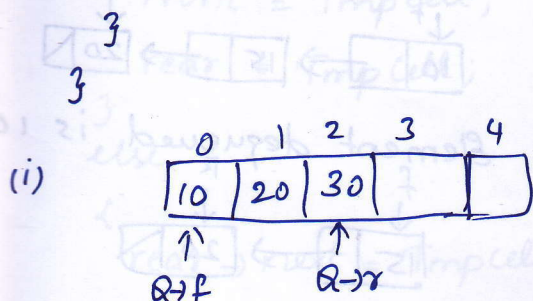 }
}
0 1 2 3 4
(i) 10 20 30
Q→f Q→r